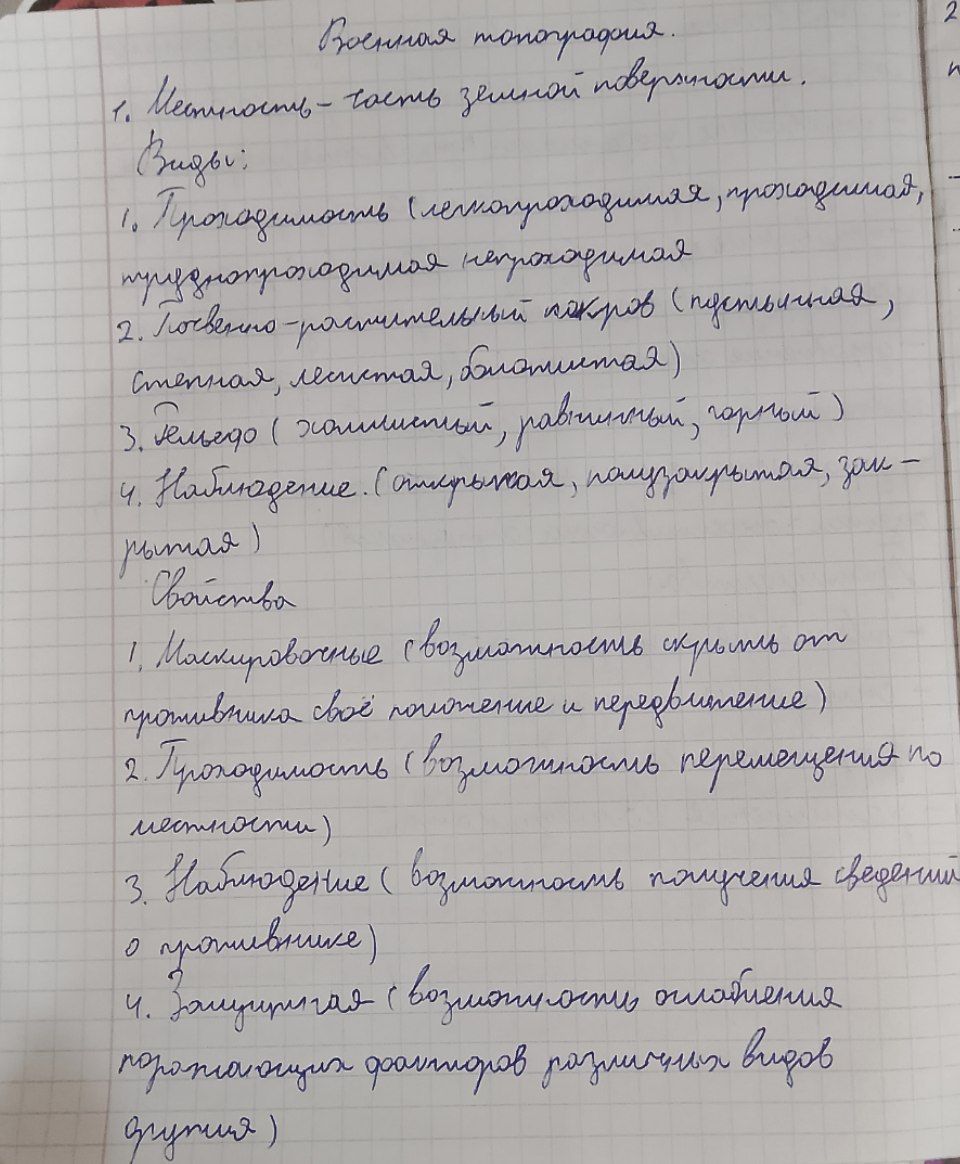 Военная топография.
1. Местность - часть земной поверхности.
Виды:
1. Проходимость (легкопроходимая, проходимая,
труднопроходимая непроходимая
2. Почвенно-растительный покров (пустынная,
степная, лесистая, болотистая)
3. Рельефо (холмистый, равнинный, горный)
4. Наблюдение. (открытая, полузакрытая, зак-
рытая)
Свойства
1. Маскировочные (возможность скрыть от
противника своё положение и передвижение)
2. Проходимость (возможность перемещения по
местности)
3. Наблюдение (возможность получения сведений
о противнике)
4. (возможность ослабления
поражающих факторов различных видов
оружия)
2